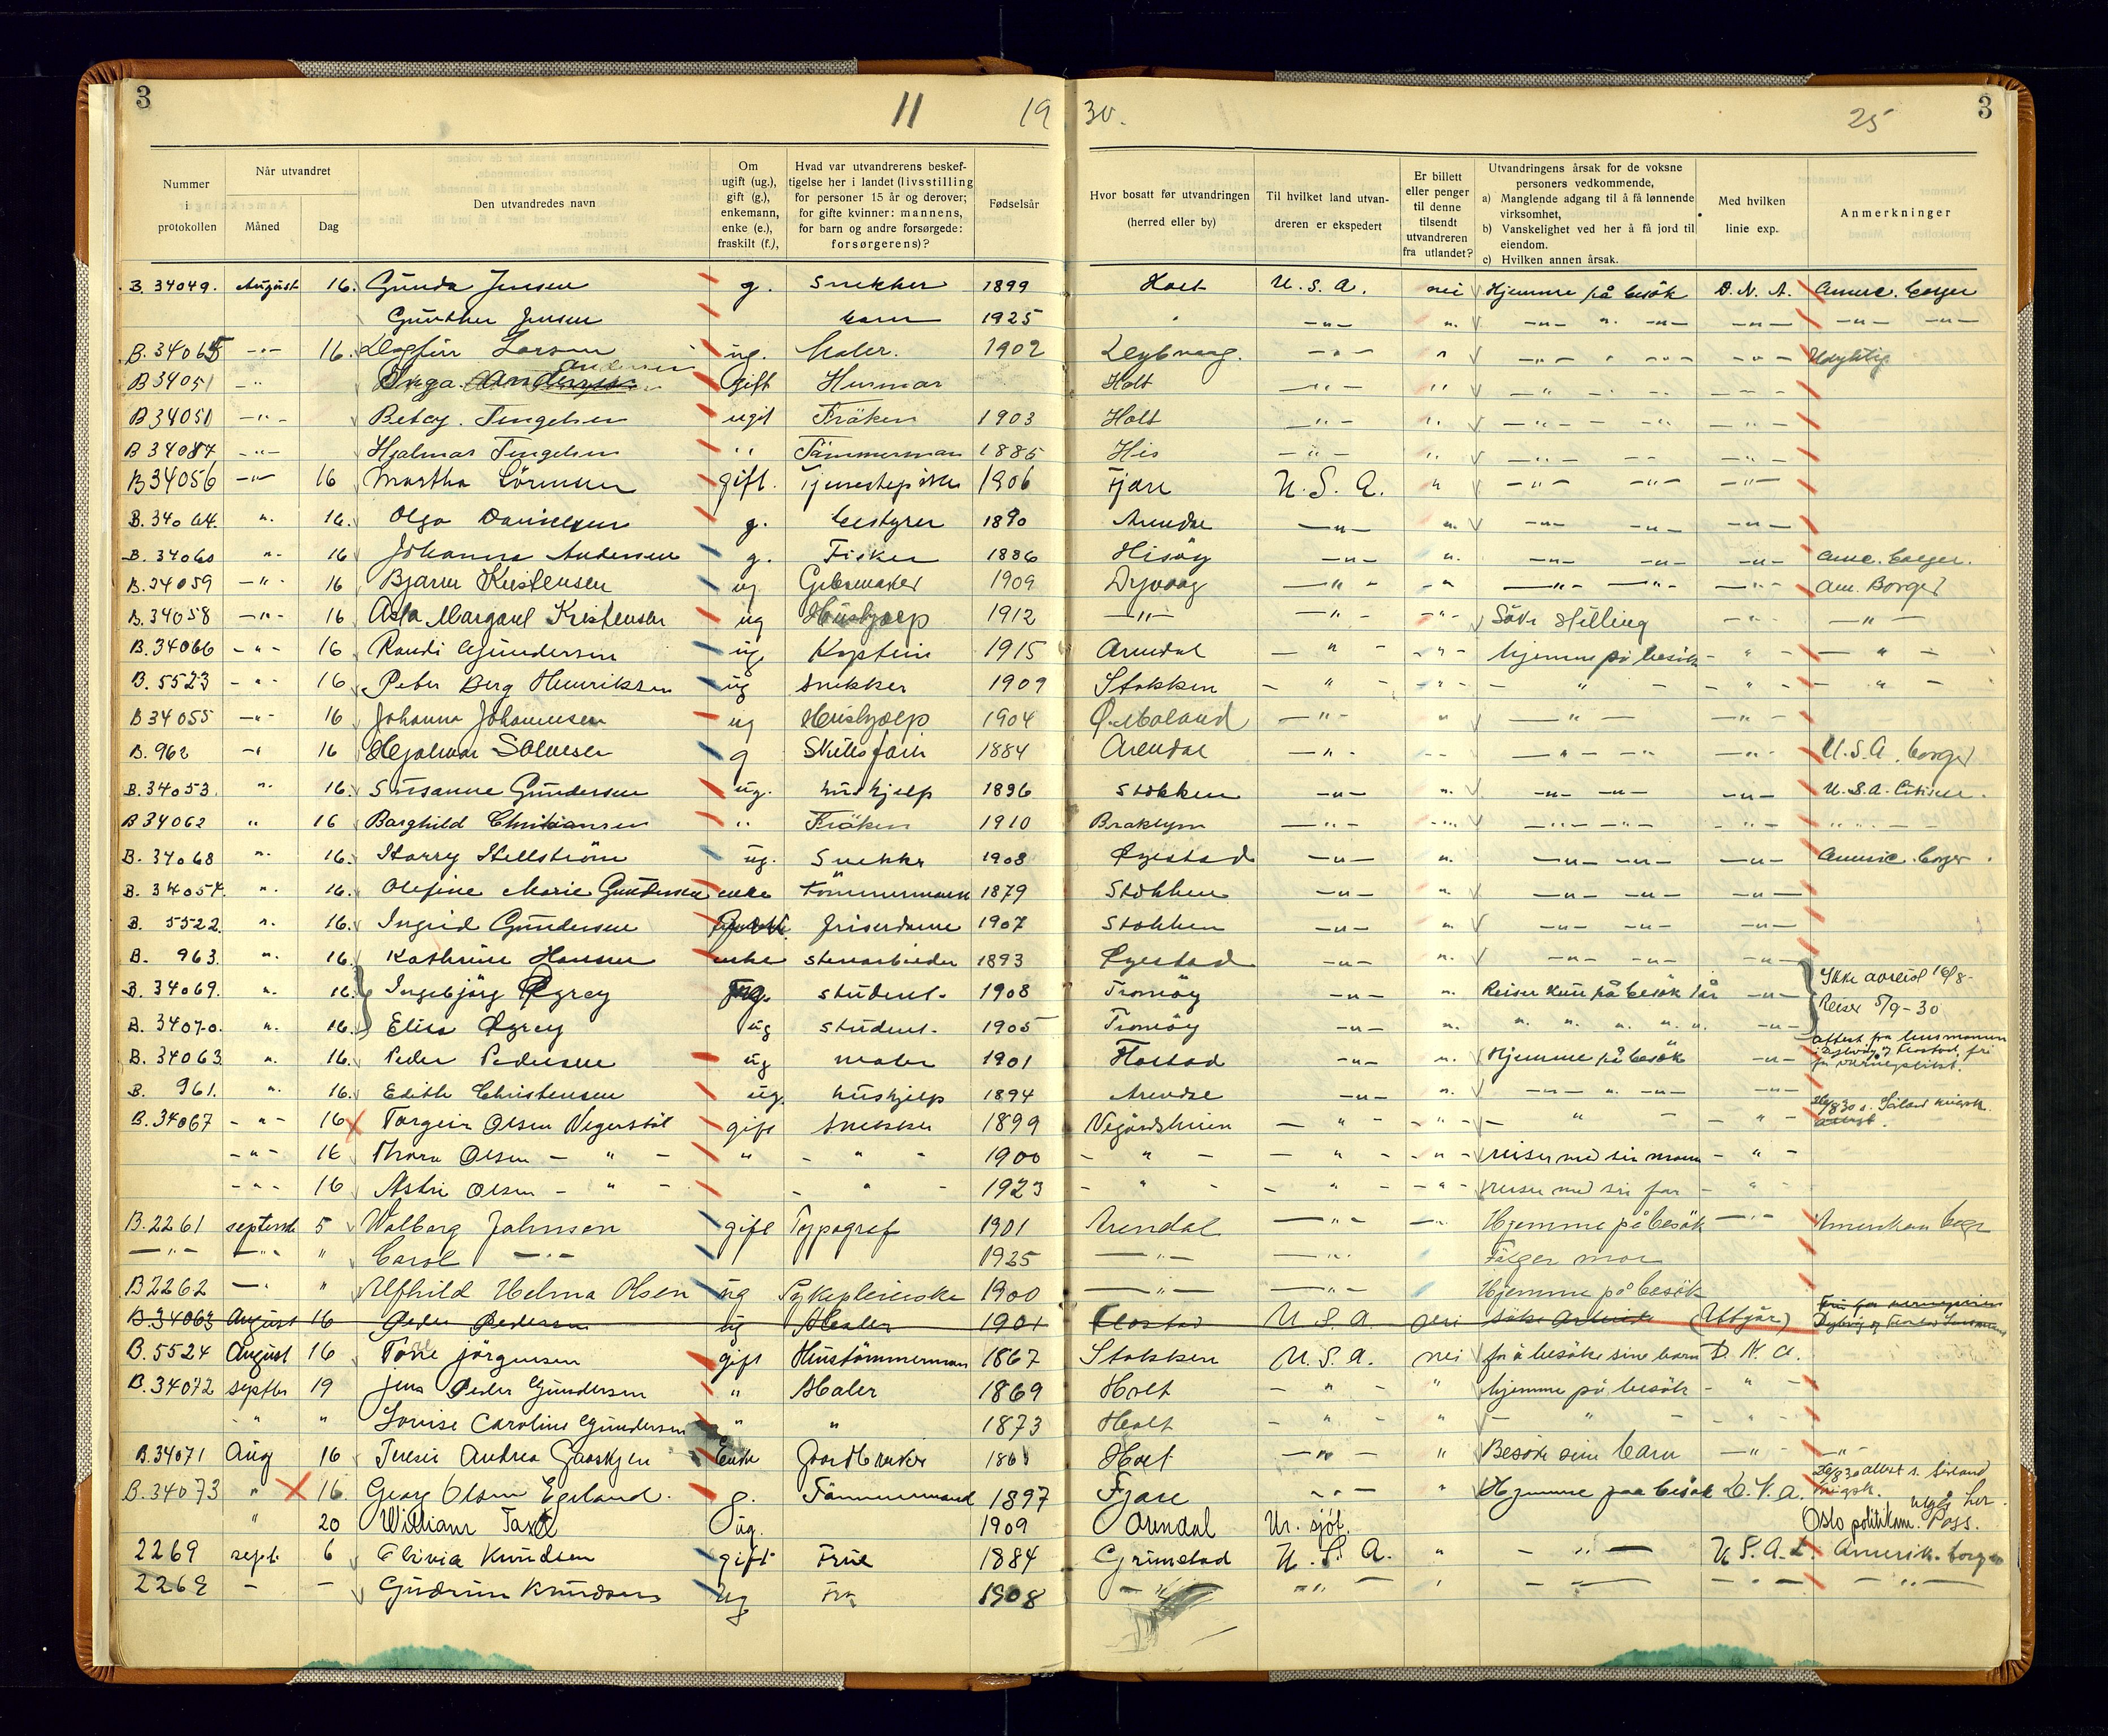 3 11 19 30. 25 3
Nummer i protokollen | Når utvandret Måned Dag | Den utvandredes navn | Om ugift (ug.), gift (g.), enkemann, enke (e.), fraskilt (f.), | Hvad var utvandrerens beskeftigelse her i landet (livsstilling for personer 15 år og derover; for gifte kvinner: mannens, for barn og andre forsørgede: forsørgerens)? | Fødselsår | Hvor bosatt før utvandringen (herred eller by) | Til hvilket land utvandreren er ekspedert | Er billett eller penger til denne tilsendt utvandreren fra utlandet? | Utvandringens årsak for de voksne personers vedkommende, a) Manglende adgang til å få lønnende virksomhet, b) Vanskelighet ved her å få jord til eiendom. c) Hvilken annen årsak. | Med hvilken linie exp. | Anmerkninger
B. 34049. August 16. Gunda Jensen g. Snekker 1899 Holt U.S.A. nei Hjemme på besök D.N.A. Americ. borger
Gunther Jensen barn 1925 " —"— ". —"— ". —"— —"— —"— —"—
B. 34065 —"— 16. Dagfin Larsen ug. Maler. 1902 Dybvaag. —"— " —"— " —"— —"—
B 34051 —"— Inga Andersen gift Husmor Holt —"— " —"— —"—
B 34050 —"— Betzy. Tengelsen ugit Fröken 1903 Holt —"— " —"— —"— —"—
B 34087 —"— Hjalmar Tengelsen " Tömmerman 1885 His —"— " —"— —"— —"—
B 34056 —"— 16 Martha Sörensen gift. Tjenestepike 1906 Fjære U.S.A. " —"— —"— —"—
B. 34064. ". 16. Olga Danielsen g. bestyrer 1890 Arendal —"— ". —"— —"— —"—
B. 34060 ". 16 Johanna Andersen g. Fisker 1886 Hisöy —"— ". —"— —"— —"— Ame. borger.
B. 34059 —"— 16 Bjarne Kristensen ug 1909 Dyvaag —"— —"— —"— —"— —"— Am. Borger
B. 34058 —"— 16 Asta Margaret Kristensen ug Hushjælp 1912 —"— —"— —"— Söke stilling —"— —"—
B. 34066 —"— 16 Randi Gundersen ug. Kaptein 1915 Arendal —"— —"— hjemme på besök —"— —"—
B. 5523 —"— 16 Peter Berg Henriksen ug snekker 1909 Stokken —"— —"— —"— —"— —"—
B 34055 —"— 16 Johanna Johannesen ug Hushjælp 1904 Ö. Moland —"— " —"— —"—
B. 962 —" 16 Hjalmar Salvesen g 1884 Arendal —"— -- —"— —"— —"— U.S.A. borger
B. 34053. ". 16. Susanne Gundersen ug. hushjelp 1896 Stokken —"— ". —"— —"— —"— U.S.A. Citisen.
B 34062 " 16 Borghild Christiansen " Fröken 1910 Broklyn —"— —"— —"— —"— —"— —"—
B. 34068 ". 16. Harry Hellström ug. Snekker 1908 Øyestad —"— ". —"— —"— —"— Americ. borger.
B. 34054. ". 16. Olefine Marie Gundersen enke tömmermann 1879 Stokken —"— ". —"— —"— —"—
B. 5522. ". 16. Ingrid Gundersen friserdame 1907 Stokken —"— ". —"— —"— —"—
B. 963. ". 16. Kathrine Hansen enke stenarbeider 1893 Øyestad —"— ". —"— —"— —"—
B. 34069. ". 16. Ingebjörg Øgrey ug. student. 1908 Tromöy —"— ". Reiser kun på besök 1 år —"— Ikke avreist 16/8- Reiser 5/9-30
B. 34070. ". 16. Elisa Øgrey ug student. 1905 Tromöy —"— ". ". ". ". ". ". —"—
B. 34063. ". 16. Peder Pedersen ug maler 1901 Flosta —"— ". Hjemme på besök —"— attest fra lensmannen i Dybvåg og Flosta fri for verneplikt.
B. 961. ". 16. Edith Christensen ug. hushjelp 1894 Arendal —"— ". —"— ". —"— —"—
B. 34067 —"— 16 Torgeir Olsen Vegerstöl gift snekker 1899 Vegårdsheien —"— —"— —"— —"— 26/8 30
—"— 16 Thora Olsen —"— " —"— 1900 —"— —"— —"— reiser med sin mann —"—
—"— 16 Astri Olsen —"— —"— 1923 —"— —"— —"— reiser med sin far —"—
B. 2261 septemb 5 Valborg Johnsen gift Typograf 1901 Arendal —"— —"— Hjemme på besök —"— Amerikan borger
—"— —"— " Carol —"— 1925 —"— —"— Fölger mor
B 2262 —"— " Alfhild Helma Olsen ug Sykepleierske 1900 —"— —"— Hjemme på besök
B. 34063 August 16 Peder Pedersen ug Maler 1901 Flostad U.S.A. nei söke Arbeide (Utgår)
B. 5524 August 16 Tone Jörgensen gift Hustömmerman 1867 Stokken U.S.A. nei for å besöke sine barn D.N.A.
B. 34072 septbr 19 Jens Peder Gundersen " Maler 1869 Holt —"— " hjemme på besök —"—
" " Lovise Caroline Gundersen " " 1873 Holt —"— " —"— —"—
B. 34071 Aug 16 Teresie Andrea Enke Gaardbruker Holt —"— " Besöke sine barn —"— —"—
B. 34073 " 16. Georg Olsen Egeland. g. Tömmermand 1897 Fjære —"— " Hjemme paa besök D.N.A. 26/8 30 attest s. Sörland krigsk.
" 20 William ug. 1909 Arendal Ur. sjöf. Oslo politikam. Pass. utg. her.
2269 sept. 6 Olivia Knudsen gift Frue 1884 Grimstad U.S.A. " —"— U.S.A.L. Amerik. borger
2268 — — Gudrun Knudsen Ug Frk 1908 —"— —"— ' —"— —"— —"—